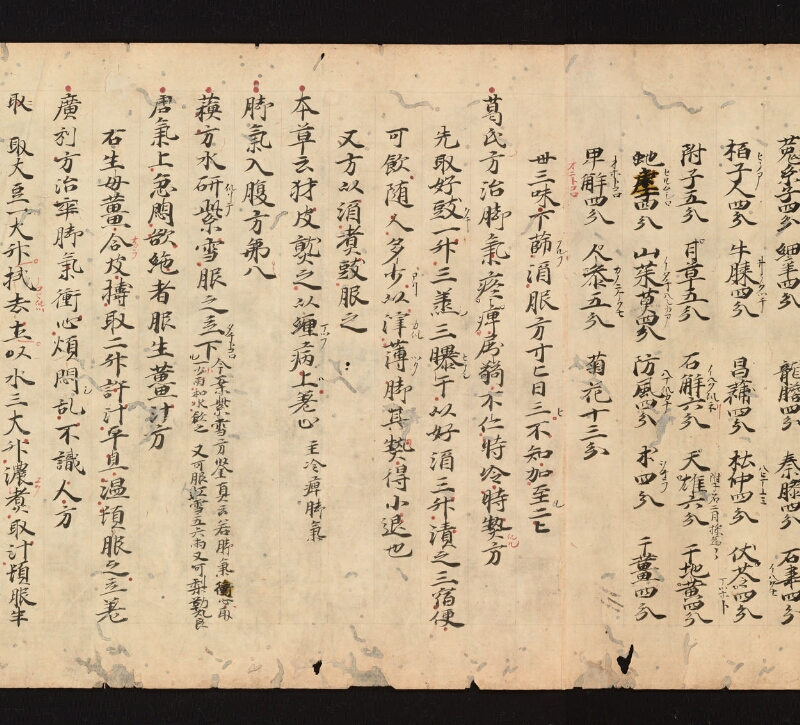 菟糸子四分 細辛四分 龍膽四分 秦膠四分 石韋四分
栢子人四分 牛膝四分 昌蒲四分 杜仲四分 伏苓四分
附子五分 甘草五分 石斛六分 天雄六分 干地黃四分
虵床四分 山茱萸四分 防風四分 朮四分 干薑四分
甲解四分 人參五分 菊花十三分
卅三味下篩酒服方寸匕日三不知加至二匕
葛氏方治脚氣疼痺屈弱不仁時冷時熱方
先取好豉一升三蒸三曝干以好酒三升漬之三宿便
可飲随人多少以滓薄脚其熱得小退也
又方以酒煮豉服之
本草云犲皮熱之以纏病上差止 主冷痺脚氣
脚氣入腹方第八
蘓方水研紫雪服之立下 今案紫雪方鑒真云若脚氣衝心取
少兩和水飲之 又可服紅雪五六兩又可梨勒丸良
唐氣上急悶欲絶者服生薑汁方
右生母薑合皮擣取二升許汁平旦温頓服之立差
廣利方治卒脚氣衝心煩悶乱不識人方
取 取大豆一大升拭去土以水三大升濃煮取汁頓服半